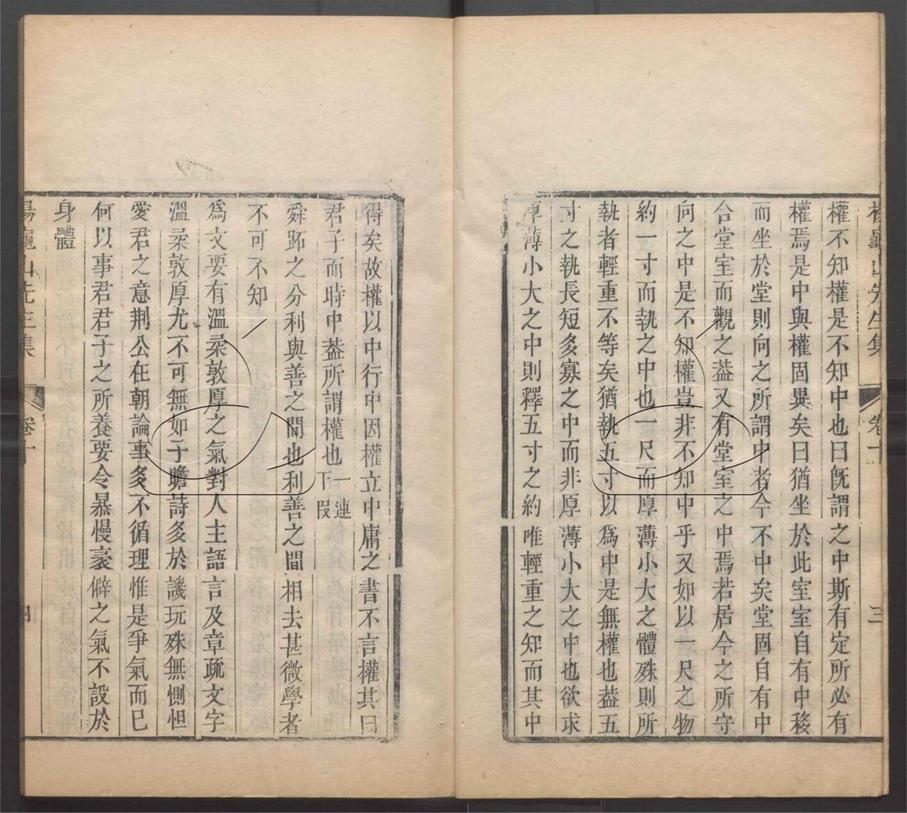 楊龜山先生集 卷十 三
權不知權是不知中也曰旣謂之中斯有定所必有
權焉是中與權固異矣曰猶坐於此室室自有中移
而坐於堂則向之所謂中者今不中矣堂固自有中
合堂室而觀之葢又有堂室之中焉若居今之所守
向之中是不知權豈非不知中乎又如以一尺之物
約一寸而執之中也一尺而厚薄小大之體殊則所
執者輕重不等矣猶執五寸以爲中是無權也葢五
寸之執長短多寡之中而非厚薄小大之中也欲求
厚薄小大之中則釋五寸之約唯輕重之知而其中
得矣故權以中行中因權立中庸之書不言權其曰
君子而時中葢所謂權也一連下叚
舜跖之分利與善之閒也利善之閒相去甚微學者
不可不知
爲文要有溫柔敦厚之氣對人主語言及章疏文字
溫柔敦厚尤不可無如子瞻詩多於譏玩殊無惻怛
愛君之意荆公在朝論事多不循理惟是爭氣而已
何以事君君子之所養要令暴慢衺僻之氣不設於
身體
楊龜山先生集 卷十 四